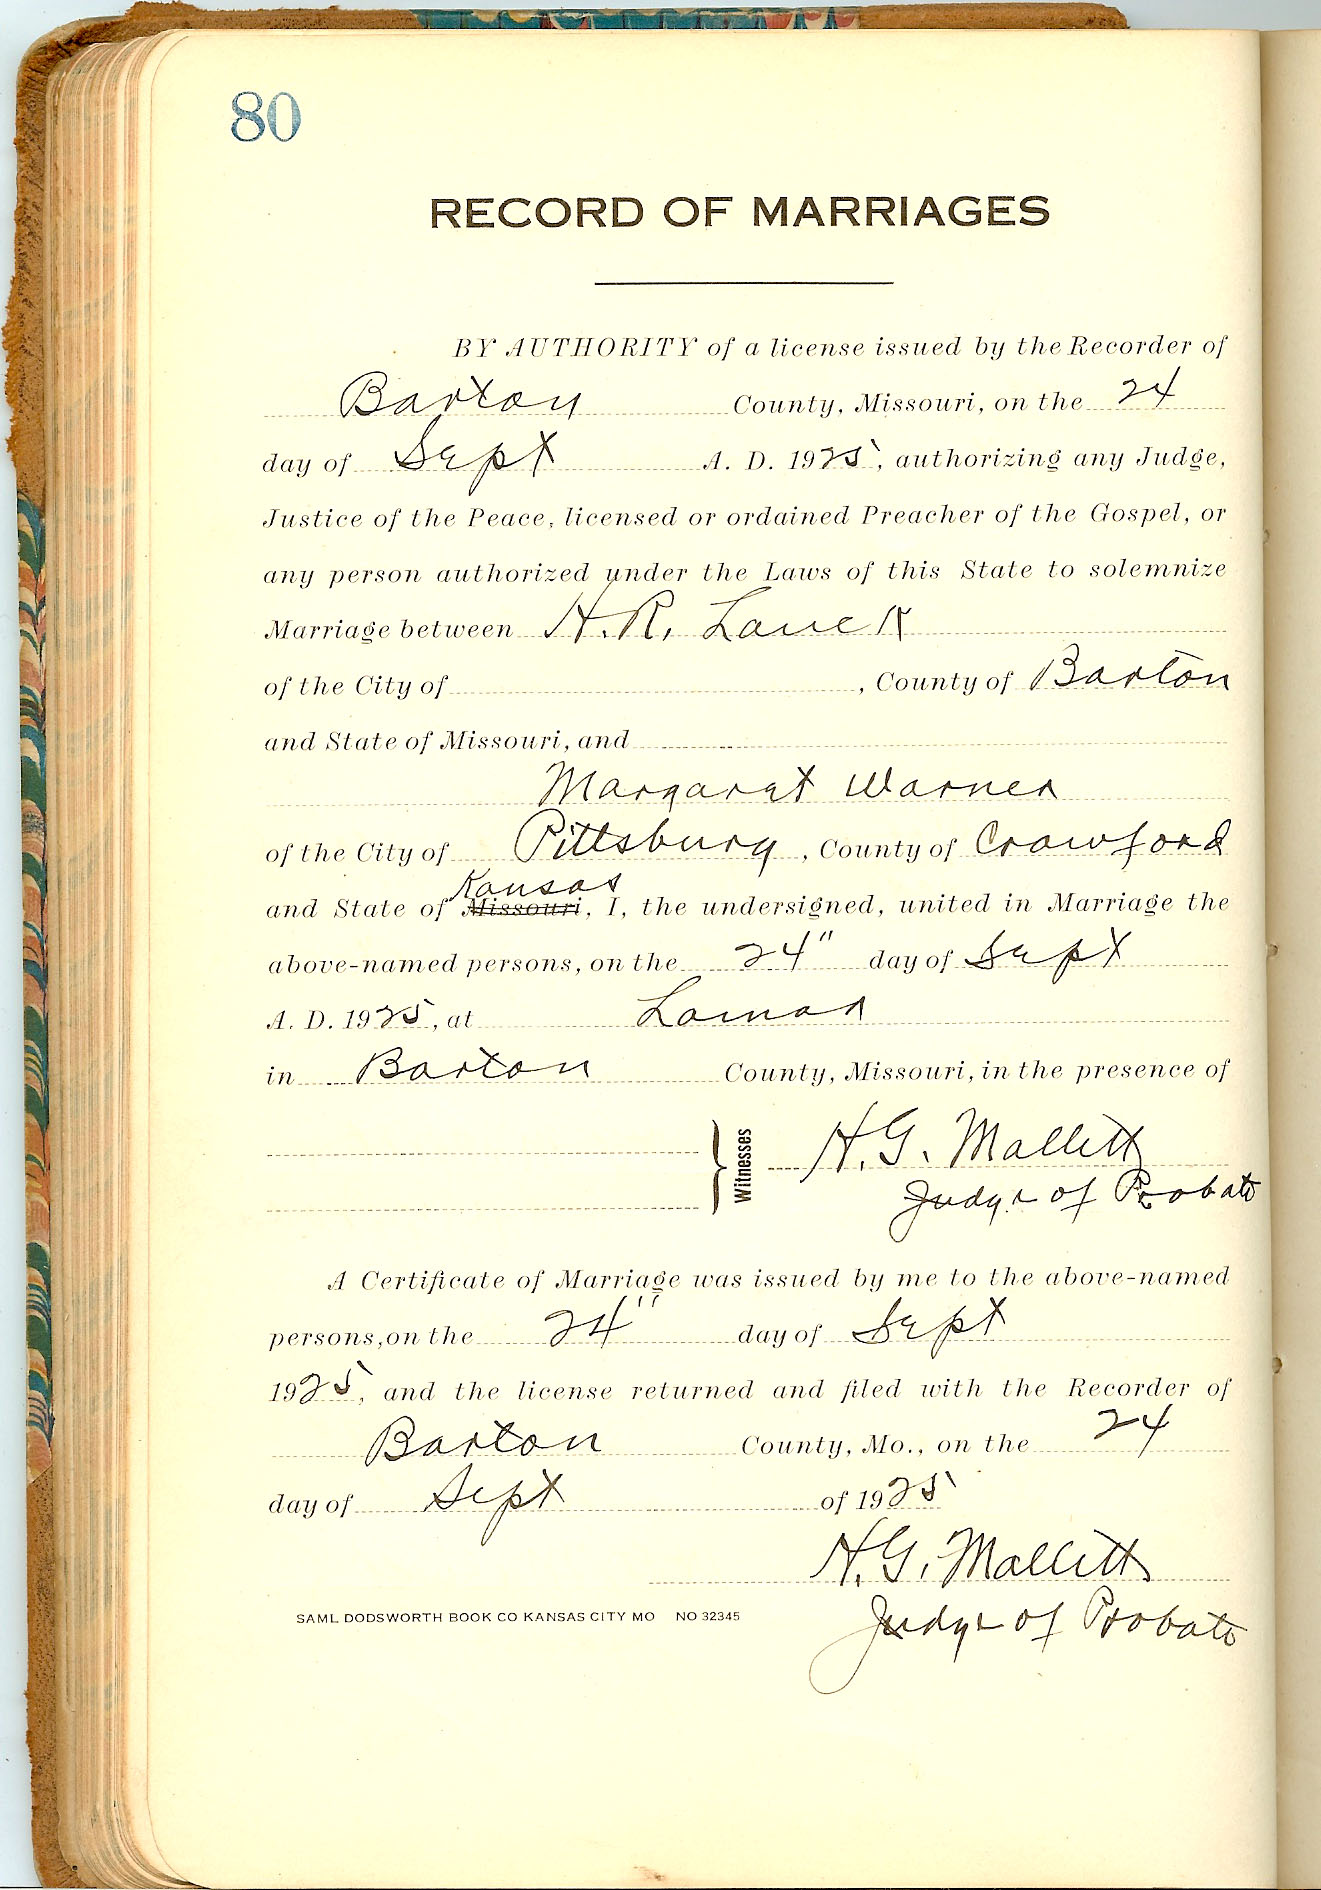 80
RECORD OF MARRIAGES
BY AUTHORITY of a license issued by the Recorder of
Barton County, Missouri, on the 24
day of Sept A. D. 1925, authorizing any Judge,
Justice of the Peace, licensed or ordained Preacher of the Gospel, or
any person authorized under the Laws of this State to solemnize
Marriage between H. R. Lauck
of the City of , County of Barton
and State of Missouri, and
Margaret Warner
of the City of Pittsburg, County of Crawford
Kansas
and State of Missouri, I, the undersigned, united in Marriage the
above-named persons, on the 24" day of Sept
A. D. 1925, at Lamar
in Barton County, Missouri, in the presence of
Witnesses H. G. Mallett
Judge of Probate
A Certificate of Marriage was issued by me to the above-named
persons, on the 24" day of Sept
1925, and the license returned and filed with the Recorder of
Barton County, Mo., on the 24
day of Sept of 1925
H. G. Mallett
SAML DODSWORTH BOOK CO KANSAS CITY MO NO 32345
Judge of Probate